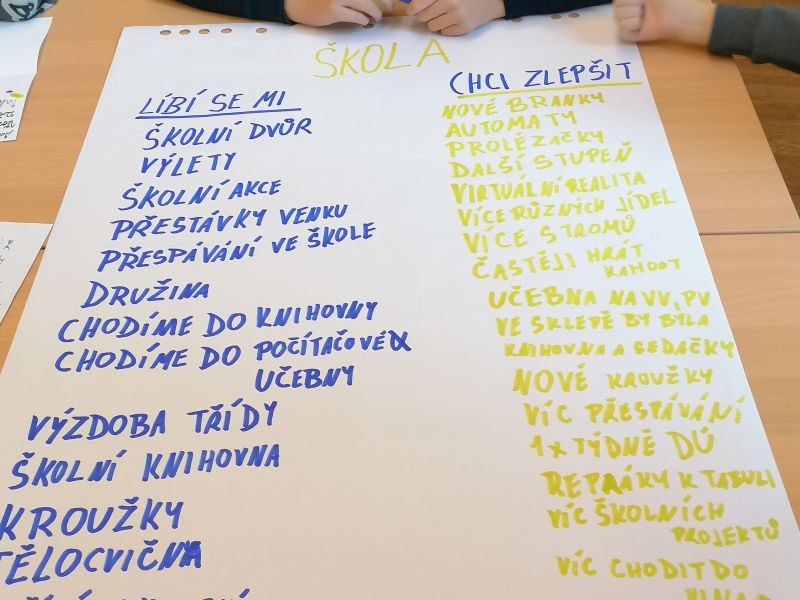 ŠKOLA
LÍBÍ SE MI
ŠKOLNÍ DVŮR
VÝLETY
ŠKOLNÍ AKCE
PŘESTÁVKY VENKU
PŘESPÁVÁNÍ VE ŠKOLE
DRUŽINA
CHODÍME DO KNIHOVNY
CHODÍME DO POČÍTAČOVÉ
UČEBNY
VÝZDOBA TŘÍDY
ŠKOLNÍ KNIHOVNA
KROUŽKY
TĚLOCVIČNA
CHCI ZLEPŠIT
NOVÉ BRANKY
AUTOMATY
PROLÉZAČKY
DALŠÍ STUPEŇ
VIRTUÁLNÍ REALITA
VÍCE RŮZNÝCH JÍDEL
VÍCE STROMŮ
ČASTĚJI HRÁT
KAHOOT
UČEBNA NA VV, PV
VE SKLEPĚ BY BYLA
KNIHOVNA A SEDAČKY
NOVÉ KROUŽKY
VÍC PŘESPÁVÁNÍ
1x TÝDNĚ DÚ
REPRÁKY K TABULI
VÍC ŠKOLNÍCH
PROJEKTŮ
VÍC CHODIT DO